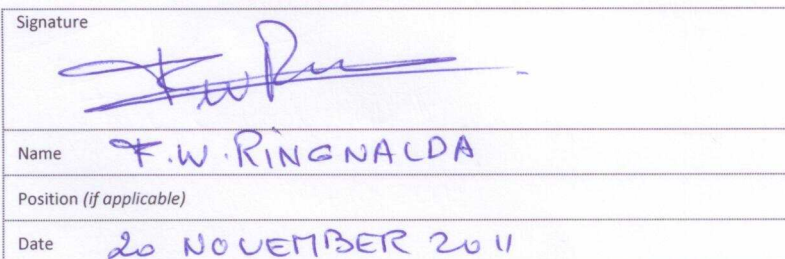 Signature
Name F.W. RINGNALDA
Position (if applicable)
Date 20 NOVEMBER 2011